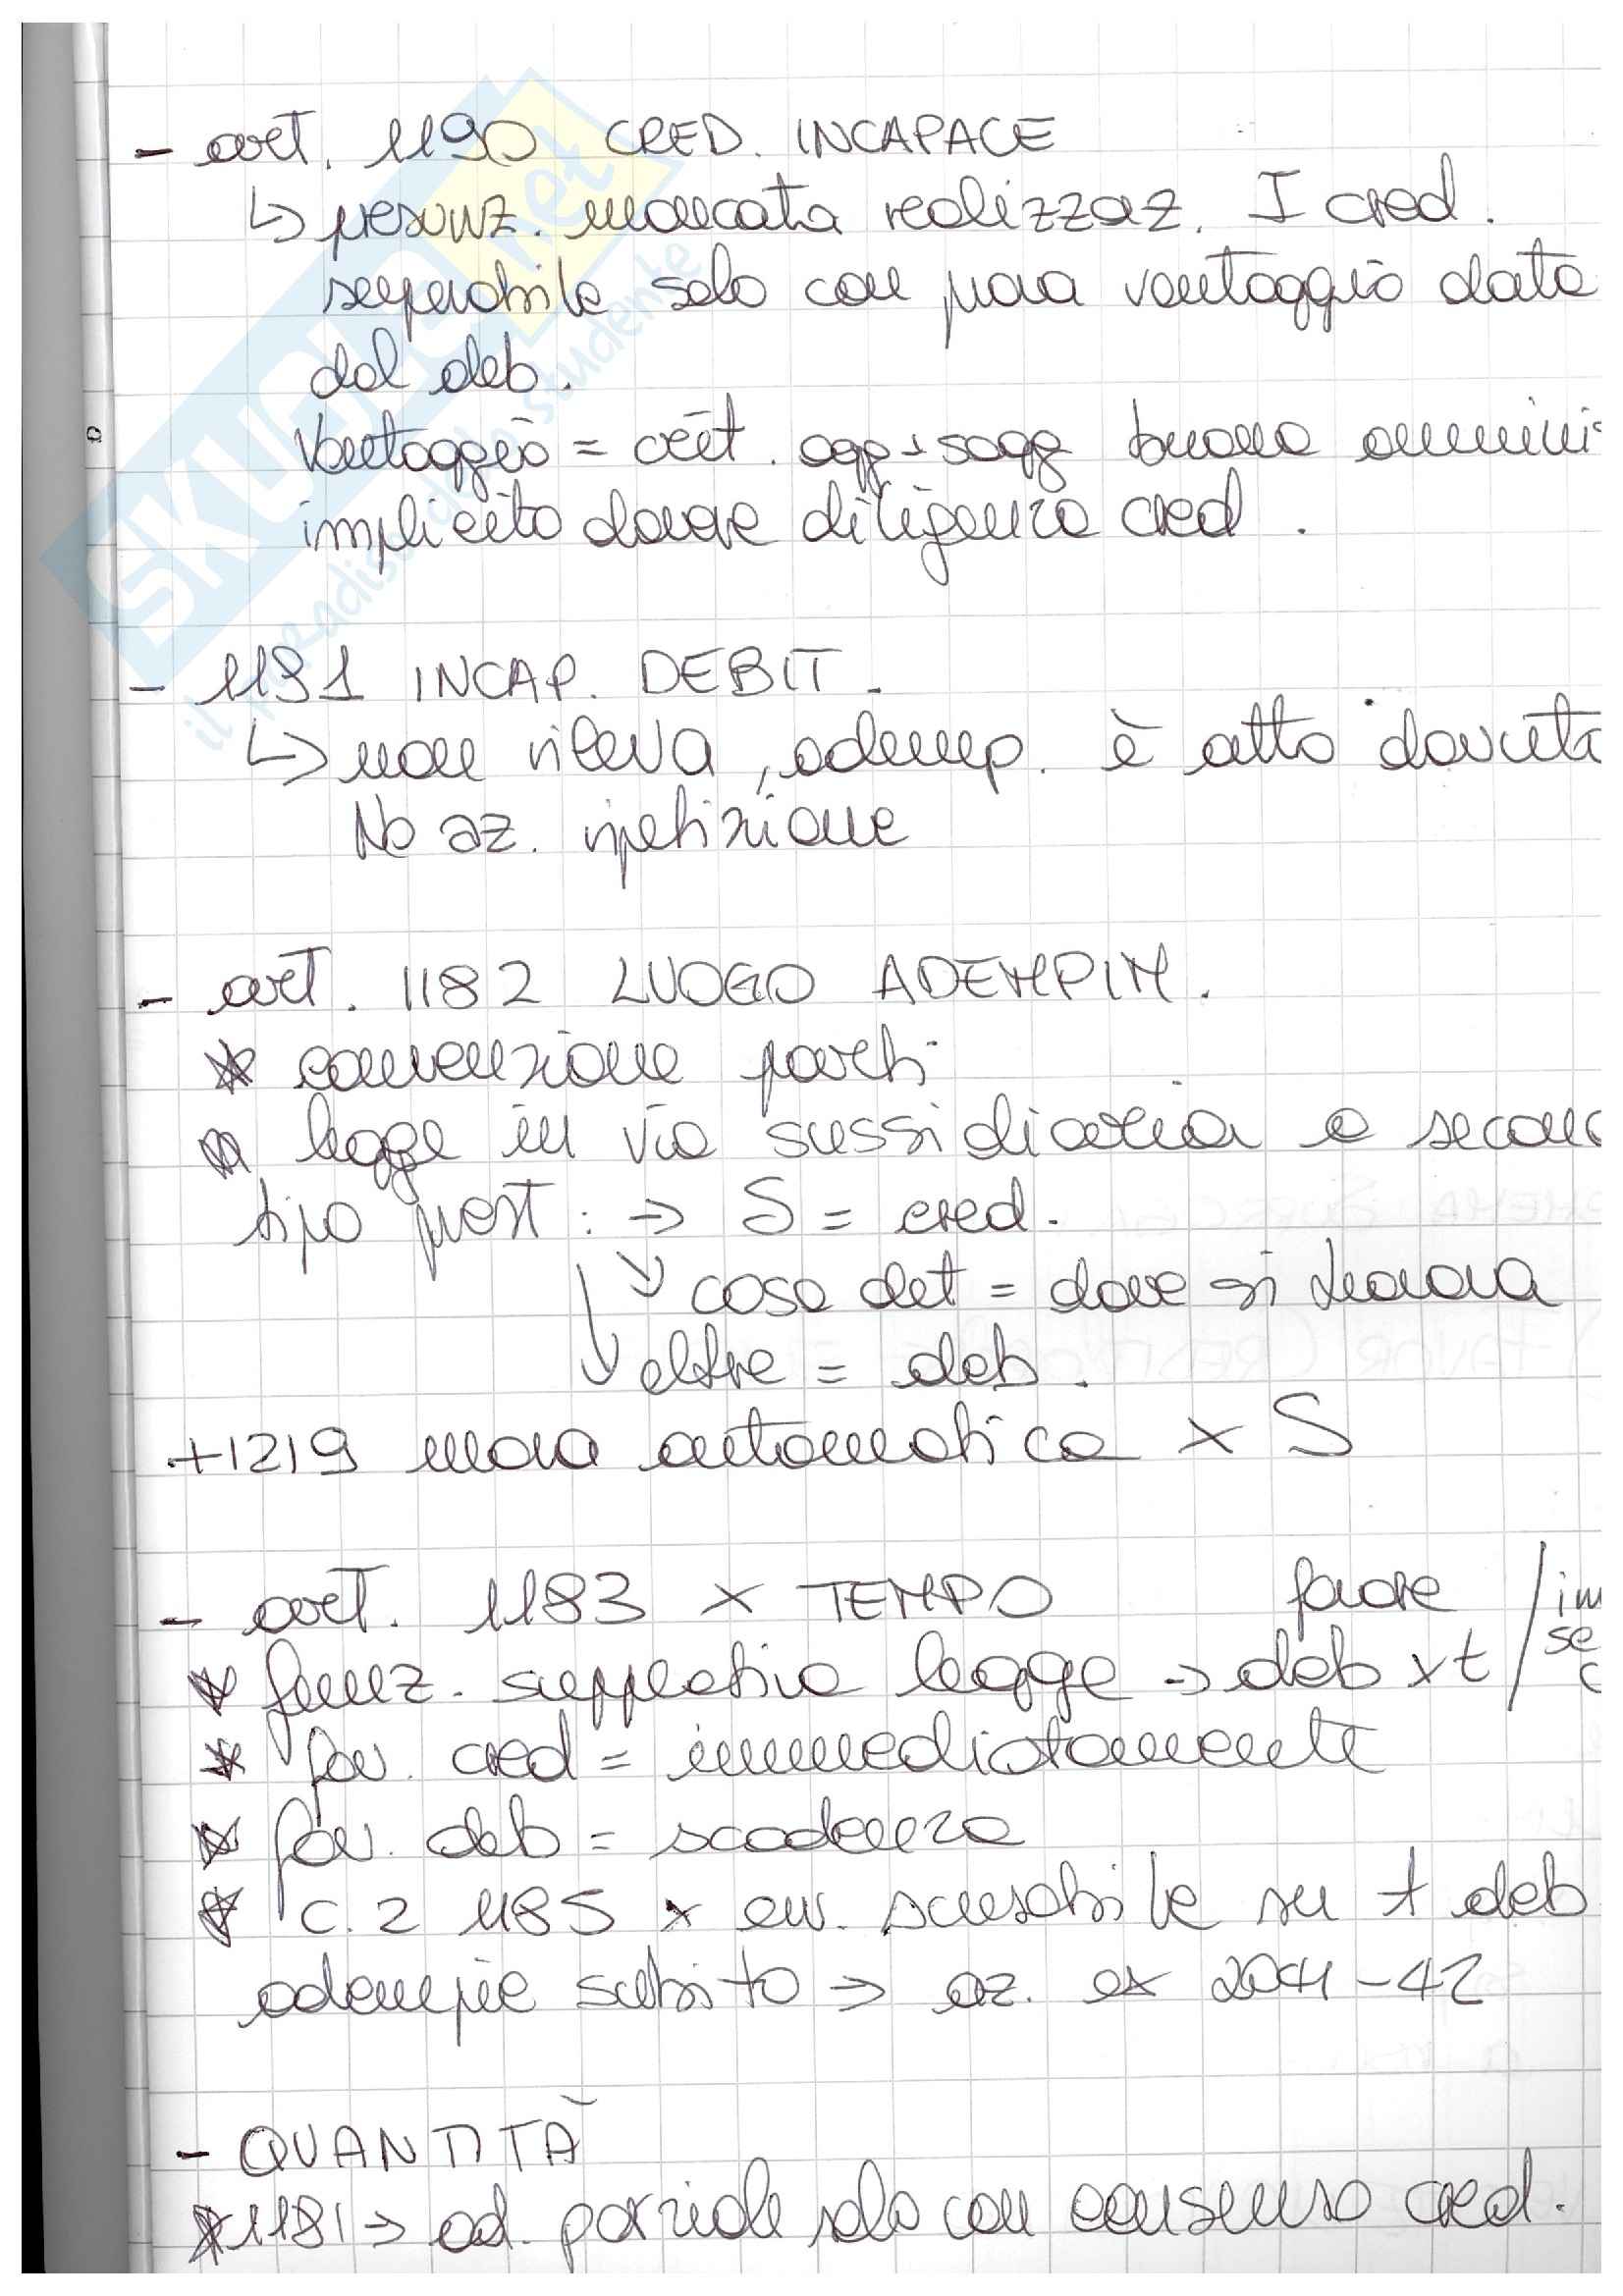 - art. 1190 CRED. INCAPACE
↳ presunz. mancata realizzaz. I cred.
superabile solo con prova vantaggio dato
dal deb.
Vantaggio = crit. ogg + sogg buona ammini
implicito dovere diligenza cred.
- 1191 INCAP. DEBIT.
↳ non rileva, adempi. è atto dovuto
No az. ripetizione
- art. 1182 LUOGO ADEMPIM.
* convenzione parti
* legge in via sussidiaria e secon
tipo prest: → S = cred.
↘ cosa det = dove si trovava
↓ altre = deb.
+1219 mora automatica x S
- art. 1183 x TEMPO favore / im
* funz. suppletiva legge → deb x t / se
* fav. cred = immediatamente
* fav. deb = scadenza
* c. 2 1185 x err. scusabile su t deb
adempie subito → az. ex 2041-42
- QUANTITÀ
* 1181 → ad. parziale solo con consenso cred.
SKUOLA.net
il paradiso dello studente